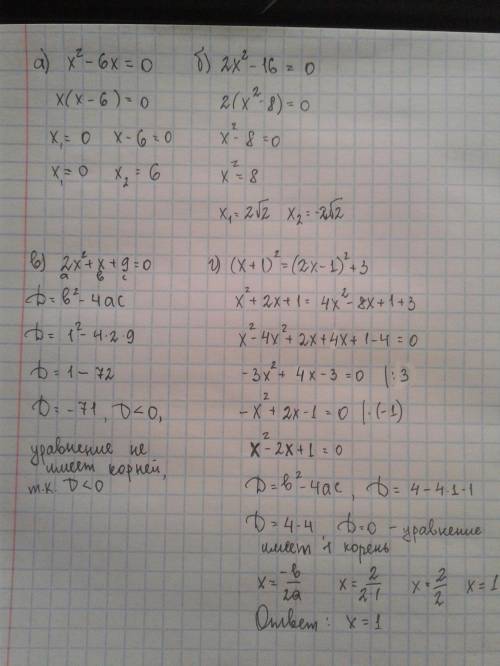 а) x² - 6x = 0
x(x - 6) = 0
x₁ = 0 x - 6 = 0
x₁ = 0 x₂ = 6
б) 2x² - 16 = 0
2(x² - 8) = 0
x² - 8 = 0
x² = 8
x₁ = 2√2 x₂ = -2√2
в) 2x² + x + 9 = 0
a в c
D = в² - 4ac
D = 1² - 4·2·9
D = 1 - 72
D = -71, D < 0,
уравнение не
имеет корней,
т.к. D < 0
г) (x + 1)² = (2x - 1)² + 3
x² + 2x + 1 = 4x² - 8x + 1 + 3
x² - 4x² + 2x + 4x + 1 - 4 = 0
-3x² + 4x - 3 = 0 |: 3
-x² + 2x - 1 = 0 |·(-1)
x² - 2x + 1 = 0
D = в² - 4ac, D = 4 - 4·1·1
D = 4 - 4, D = 0 - уравнение
имеет 1 корень
x = -в/2a x = 2/2·1 x = 2/2 x = 1
Ответ: x = 1